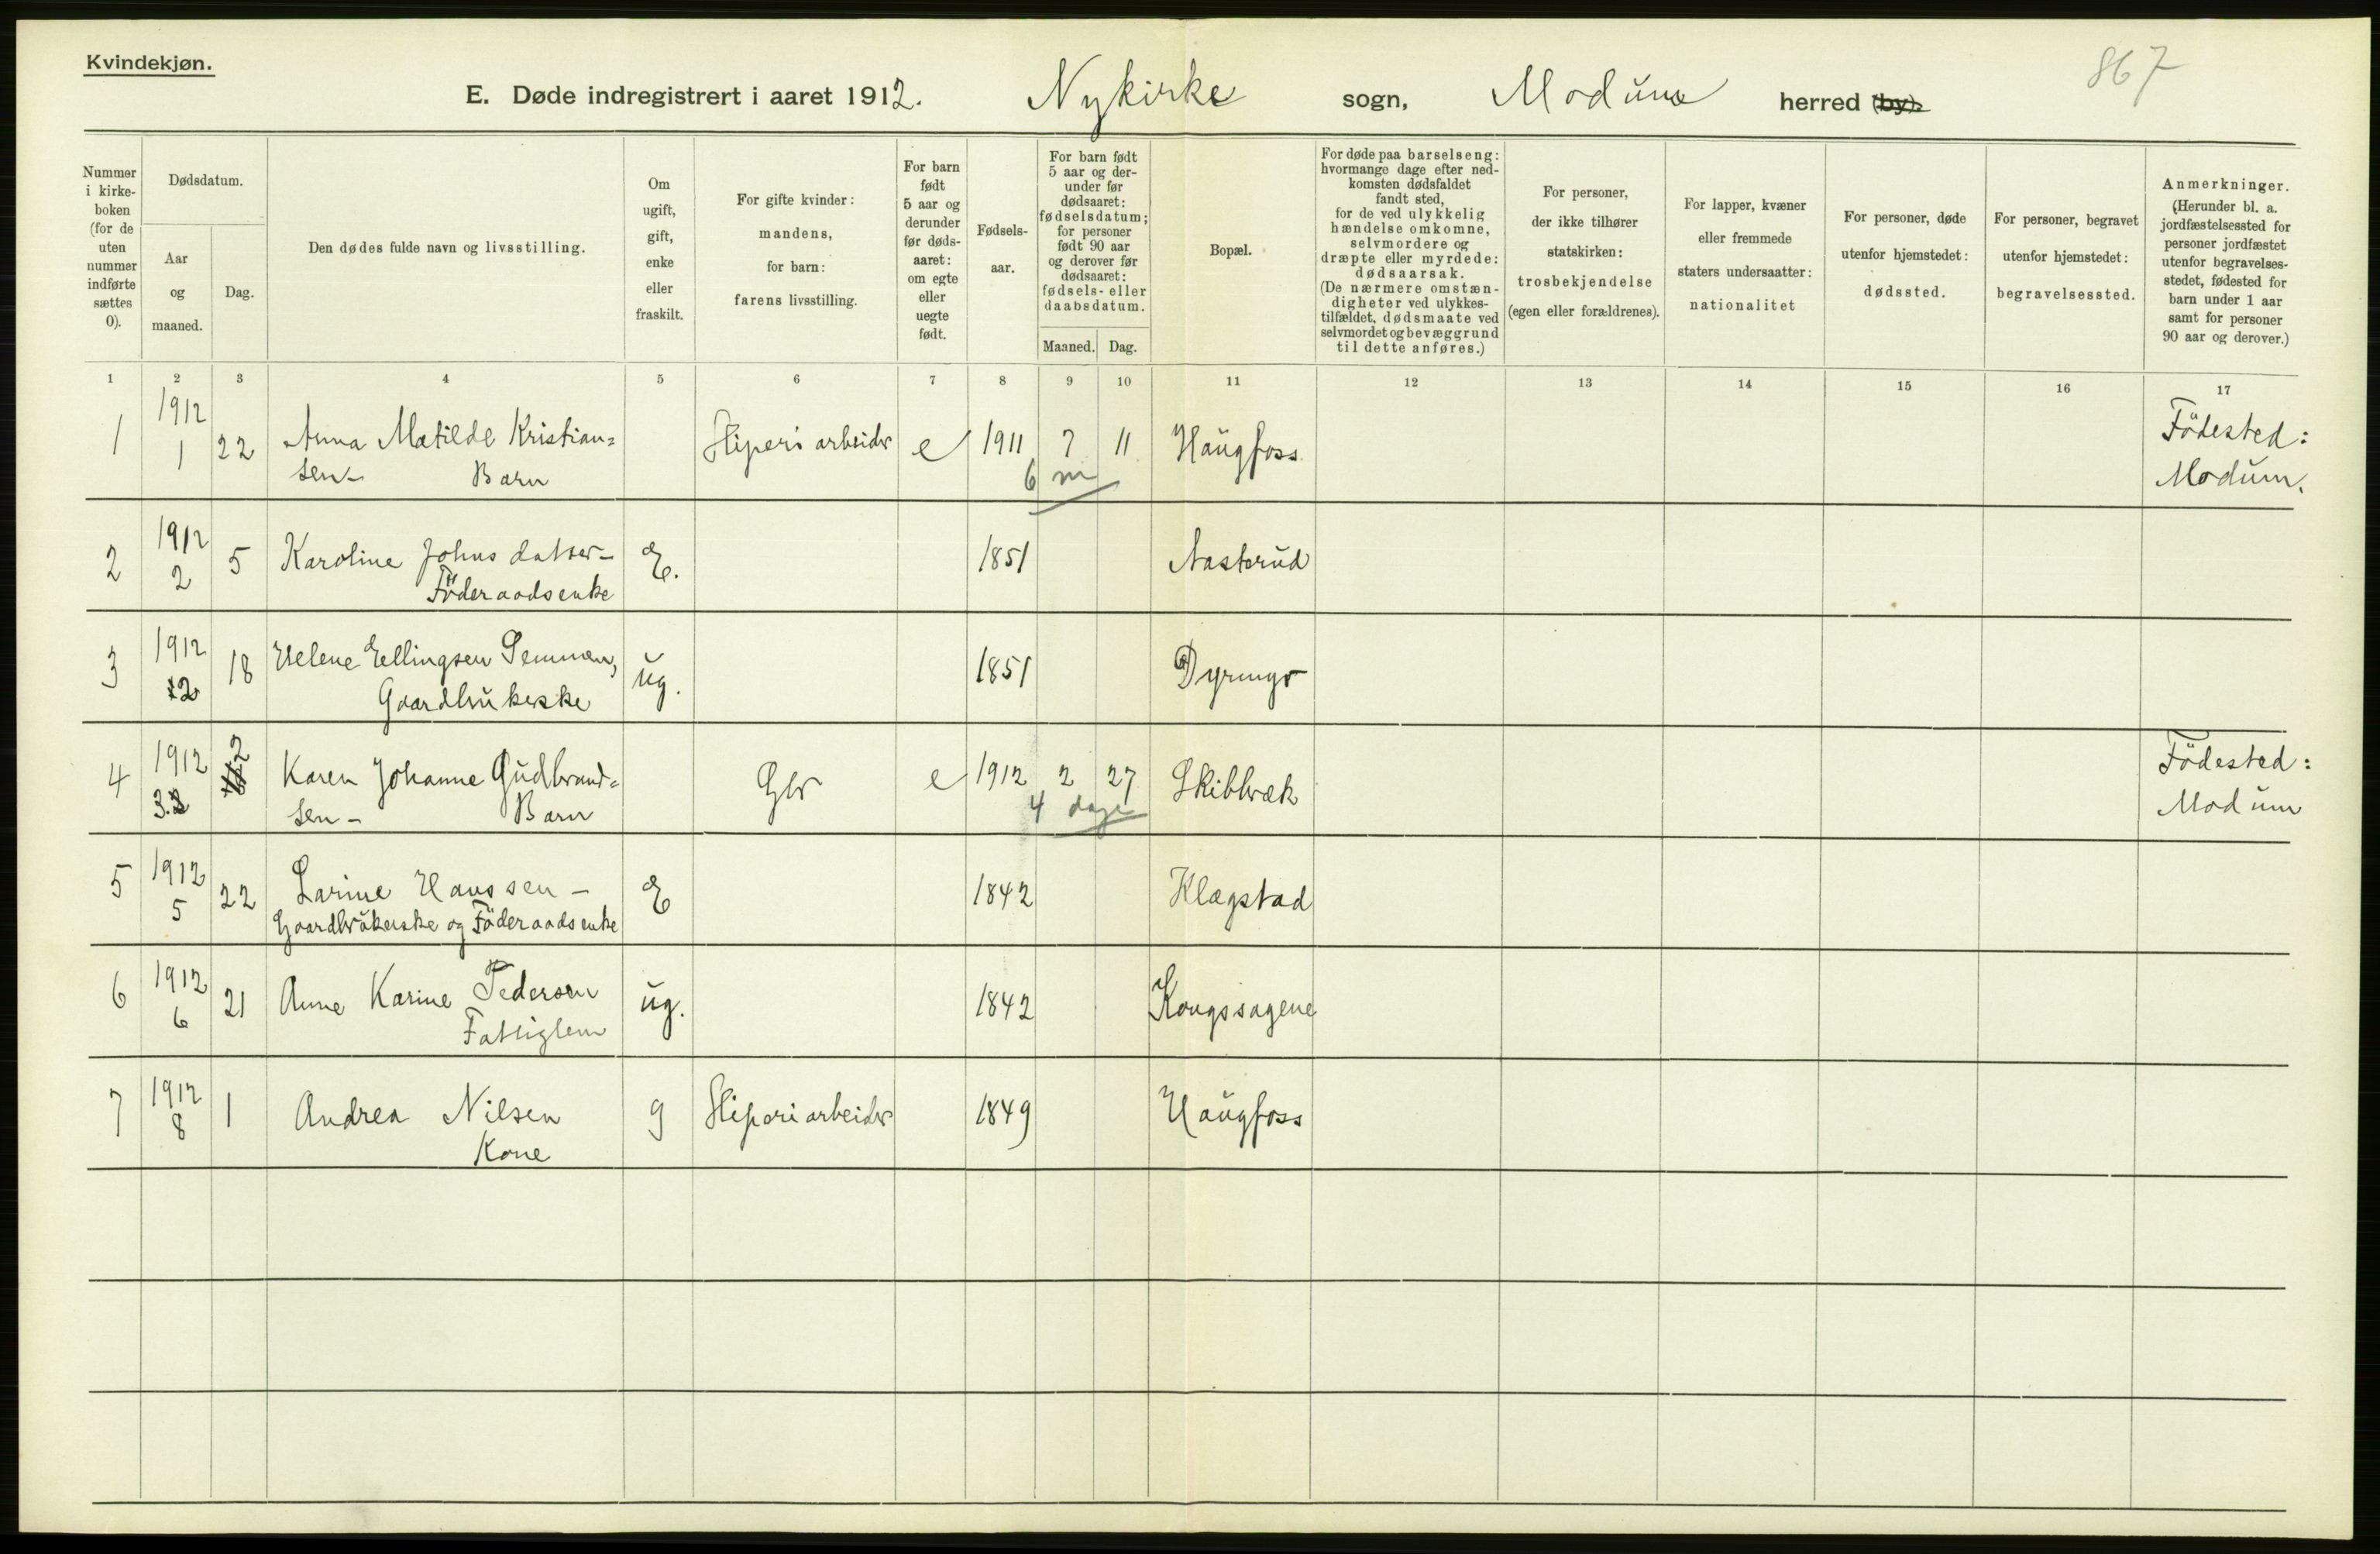 Kvindekjøn.
867
E. Døde indregistrert i aaret 1912. Nykirke sogn, Modum herred (by).
Nummer i kirkeboken (for de uten nummer indførte sættes 0).
Dødsdatum.
Aar og maaned.
Dag.
Den dødes fulde navn og livsstilling.
Om ugift, gift, enke eller fraskilt.
For gifte kvinder: mandens, for barn: farens livsstilling.
For barn født 5 aar og derunder før dødsaaret: om egte eller uegte født.
Fødselsaar.
For barn født 5 aar og derunder før dødsaaret: fødselsdatum; for personer født 90 aar og derover før dødsaaret: fødsels- eller daabsdatum.
Maaned. Dag.
Bopæl.
For døde paa barselseng: hvormange dage efter nedkomsten dødsfaldet fandt sted, for de ved ulykkelig hændelse omkomne, selvmordere og dræpte eller myrdede: dødsaarsak. (De nærmere omstændigheter ved ulykkestilfældet, dødsmaate ved selvmordet og bevæggrund til dette anføres.)
For personer, der ikke tilhører statskirken: trosbekjendelse (egen eller forældrenes).
For lapper, kvæner eller fremmede staters undersaatter: nationalitet
For personer, døde utenfor hjemstedet: dødssted.
For personer, begravet utenfor hjemstedet: begravelsessted.
Anmerkninger. (Herunder bl. a. jordfæstelsessted for personer jordfæstet utenfor begravelsesstedet, fødested for barn under 1 aar samt for personer 90 aar og derover.)
1 2 3 4 5 6 7 8 9 10 11 12 13 14 15 16 17
1 1912 1 22 Anna Matilde Kristian=
sen- Barn Sliperiarbeider e 1911 7 11 Haugfoss Födested: Modum.
6 m
2 1912 2 5 Karoline Johnsdatter-
Föderaadsenke E. 1851 Aasterud
3 1912 2 18 Helene Ellingsen Semmen,
Gaardbrukerske ug. 1851
4 1912 3. 2 Karen Johanne Gudbrand=
sen- Barn Gbr e 1912 2 27 Skibbræk Födested: Modum
4 dage
5 1912 5 22 Larine Hanssen -
Gaardbrukerske og Föderaadsenke E 1842 Klægstad
6 1912 6 21 Anne Karine Pedersen
Fattiglem ug. 1842 Kongssagene
7 1912 8 1 Andrea Nilsen
Kone g Sliperiarbeider 1849 Haugfoss